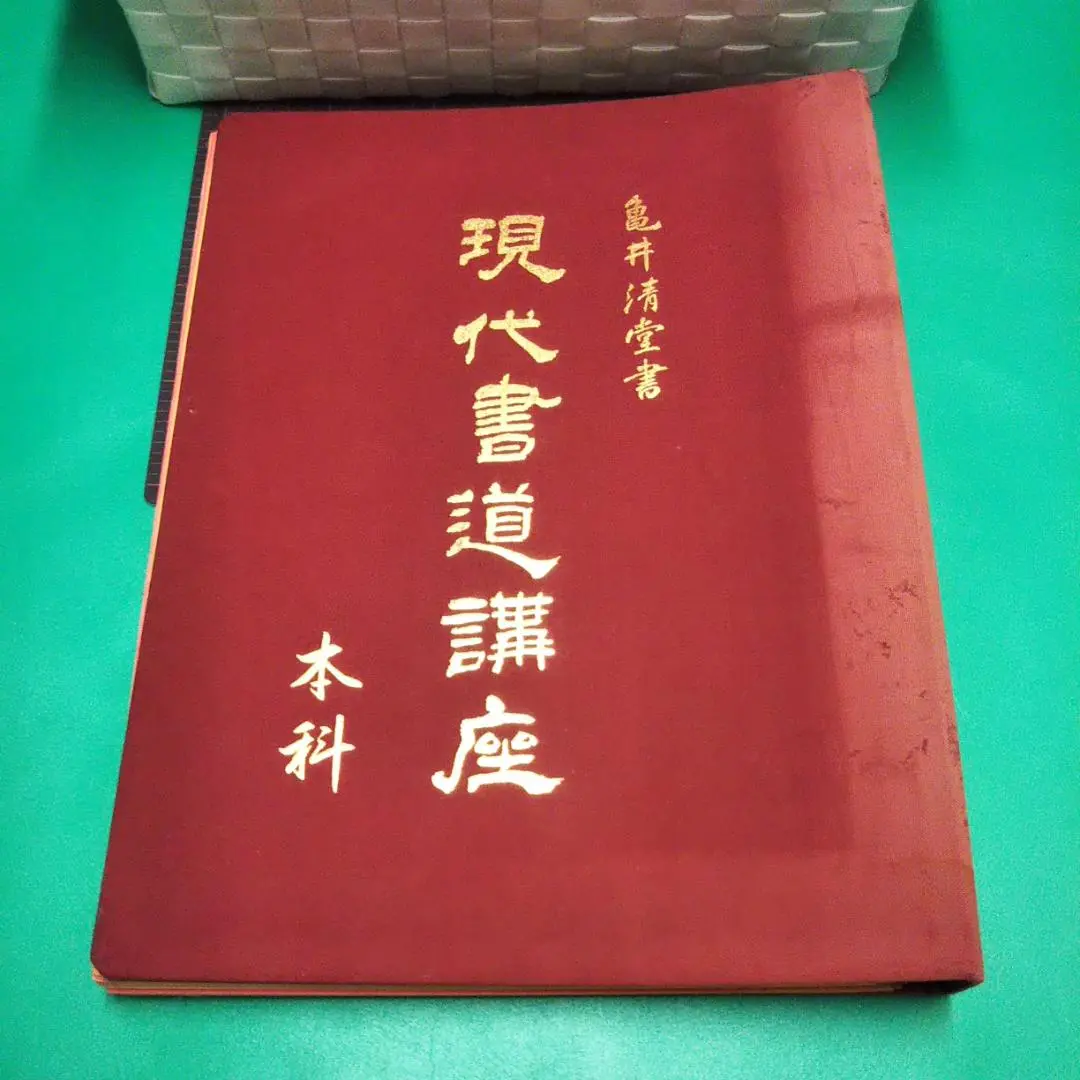 亀井清堂書
現代書道講座
本科